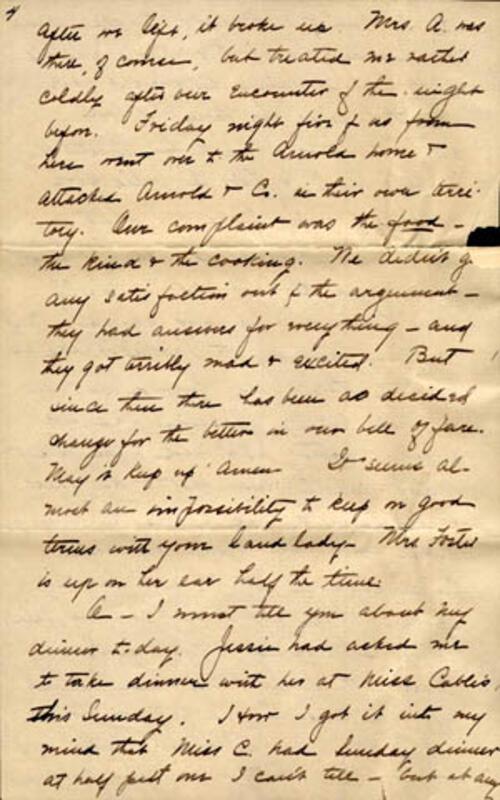 4
after we left, it broke up. Mrs. A. was
there, of course, but treated me rather
coldly after our encounter of the night
before. Friday night five of us from
here went over to the Arnold home &
attacked Arnold & Co. in their own terri-
tory. Our complaint was the food -
the kind & the cooking. We didn't g
any satisfaction out of the argument -
they had answers for everything - and
they got terribly mad & excited. But
since then there has been a decided
change for the better in our bill of fare.
May it keep up Amen It seems al-
most an impossibility to keep on good
terms with your landlady - Mrs Foster
is up on her ear half the time.
I must tell you about my
dinner to-day. Jessie had asked me
to take dinner with her at Miss Cable's
this Sunday. How I got it into my
mind that Miss C. had Sunday dinner
at half past one I can't tell - but at any